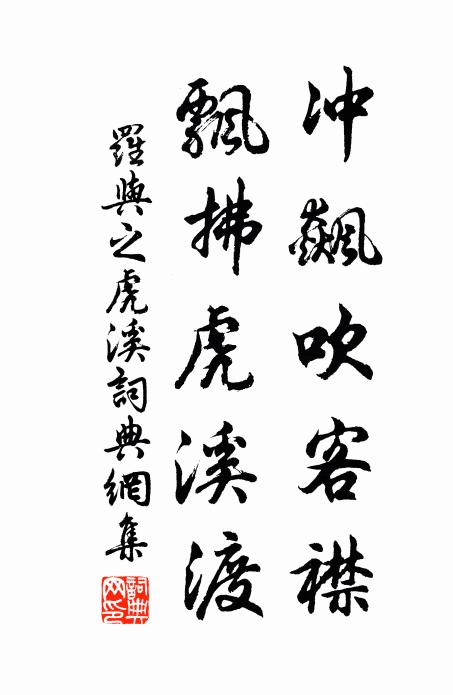 冲飙吹客襟
飘拂虎溪渡
羅與之虎溪詞典網集
詞典網印